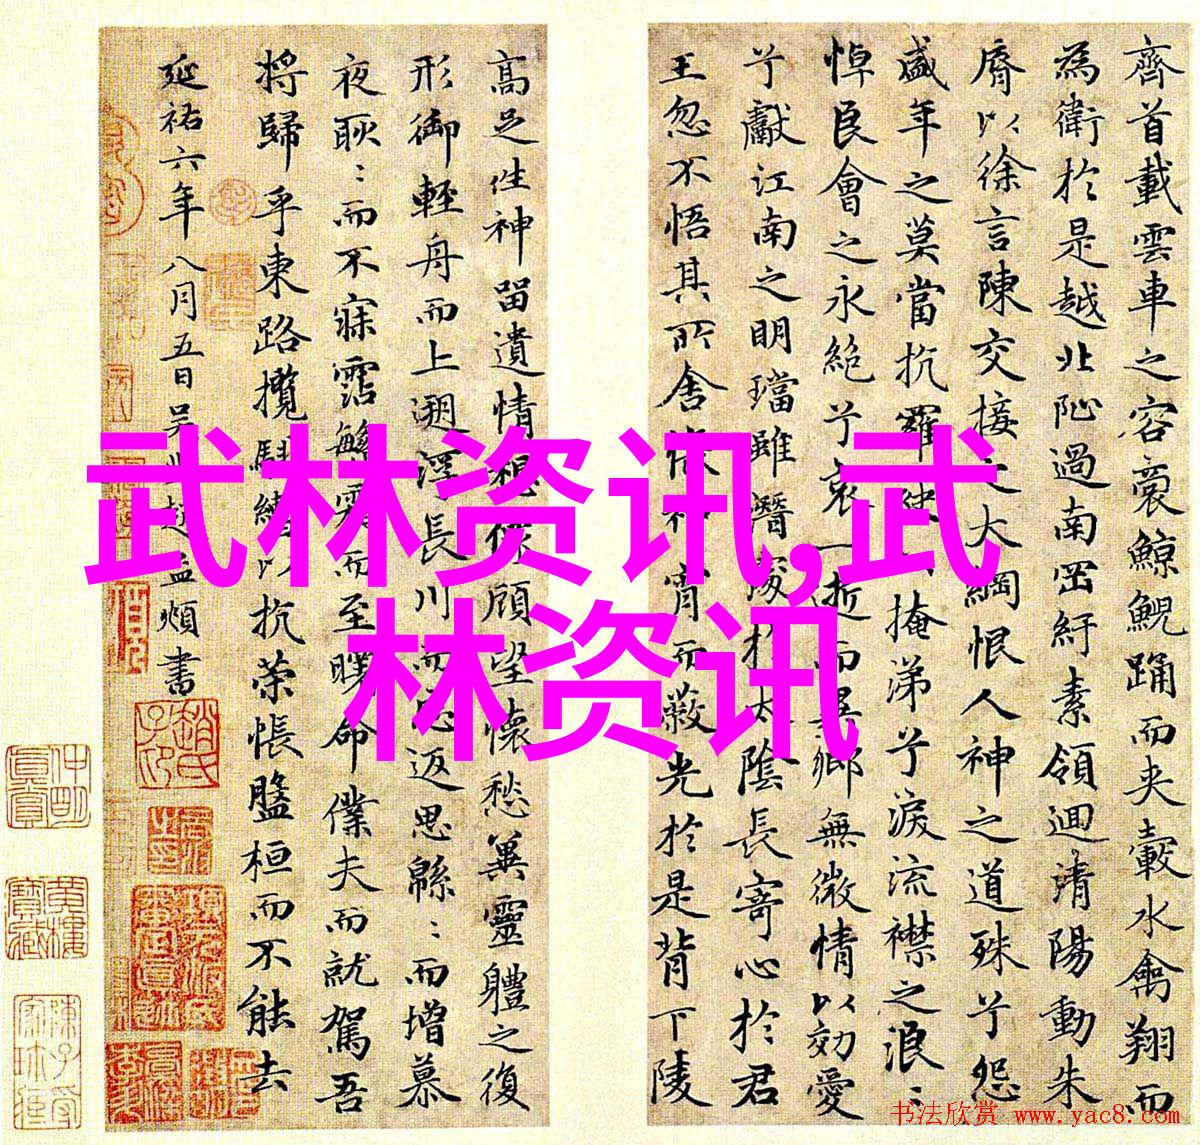 齊首載雲車之容裔鯨鯢踊而夾轂水禽翔而
為衛於是越北沚過南岡紆素領迴清陽動朱
脣以徐言陳交接之大綱恨人神之道殊兮怨
盛年之莫當抗羅袂以掩涕兮淚流襟之浪〻
悼良會之永絕兮哀一逝而異鄉無微情以効愛
兮獻江南之明璫雖潛處於太陰長寄心於君
王忽不悟其所舍悵神宵而蔽光於是背下陵
高足往神留遺情想像顧望懷愁冀靈體之復
形御輕舟而上遡浮長川而忘返思緜〻而增慕
夜耿〻而不寐霑繁霜而至曙命僕夫而就駕吾
將歸乎東路攬騑轡以抗策悵盤桓而不能去
延祐六年八月五日吳興趙孟頫書
武林资讯,武
林资讯
趙氏子印
书法欣赏 www.yac8.com